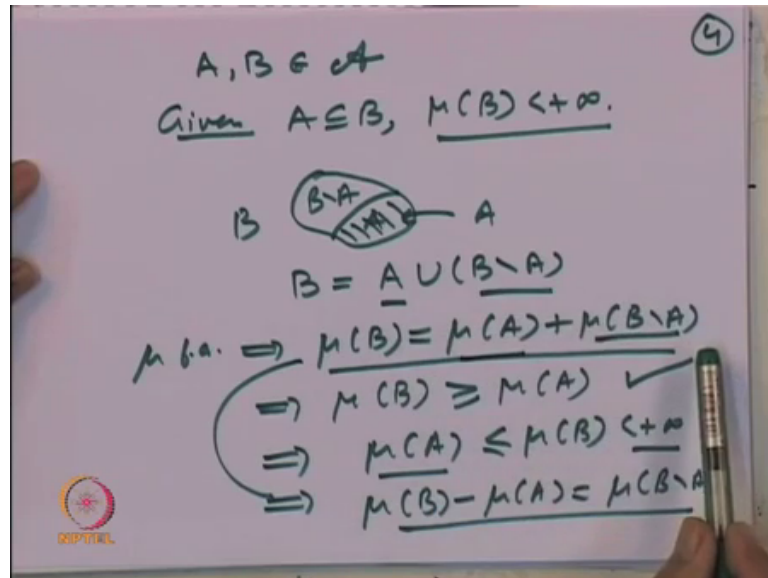 4
A, B ∈ 𝒜
Given A ⊆ B, μ(B) < +∞.
B B∖A A A
B = A ∪ (B∖A)
μ f.a. ⟹ μ(B) = μ(A) + μ(B∖A)
⟹ μ(B) ≥ μ(A) ✓
⟹ μ(A) ≤ μ(B) < +∞
⟹ μ(B) − μ(A) = μ(B∖A
NPTEL